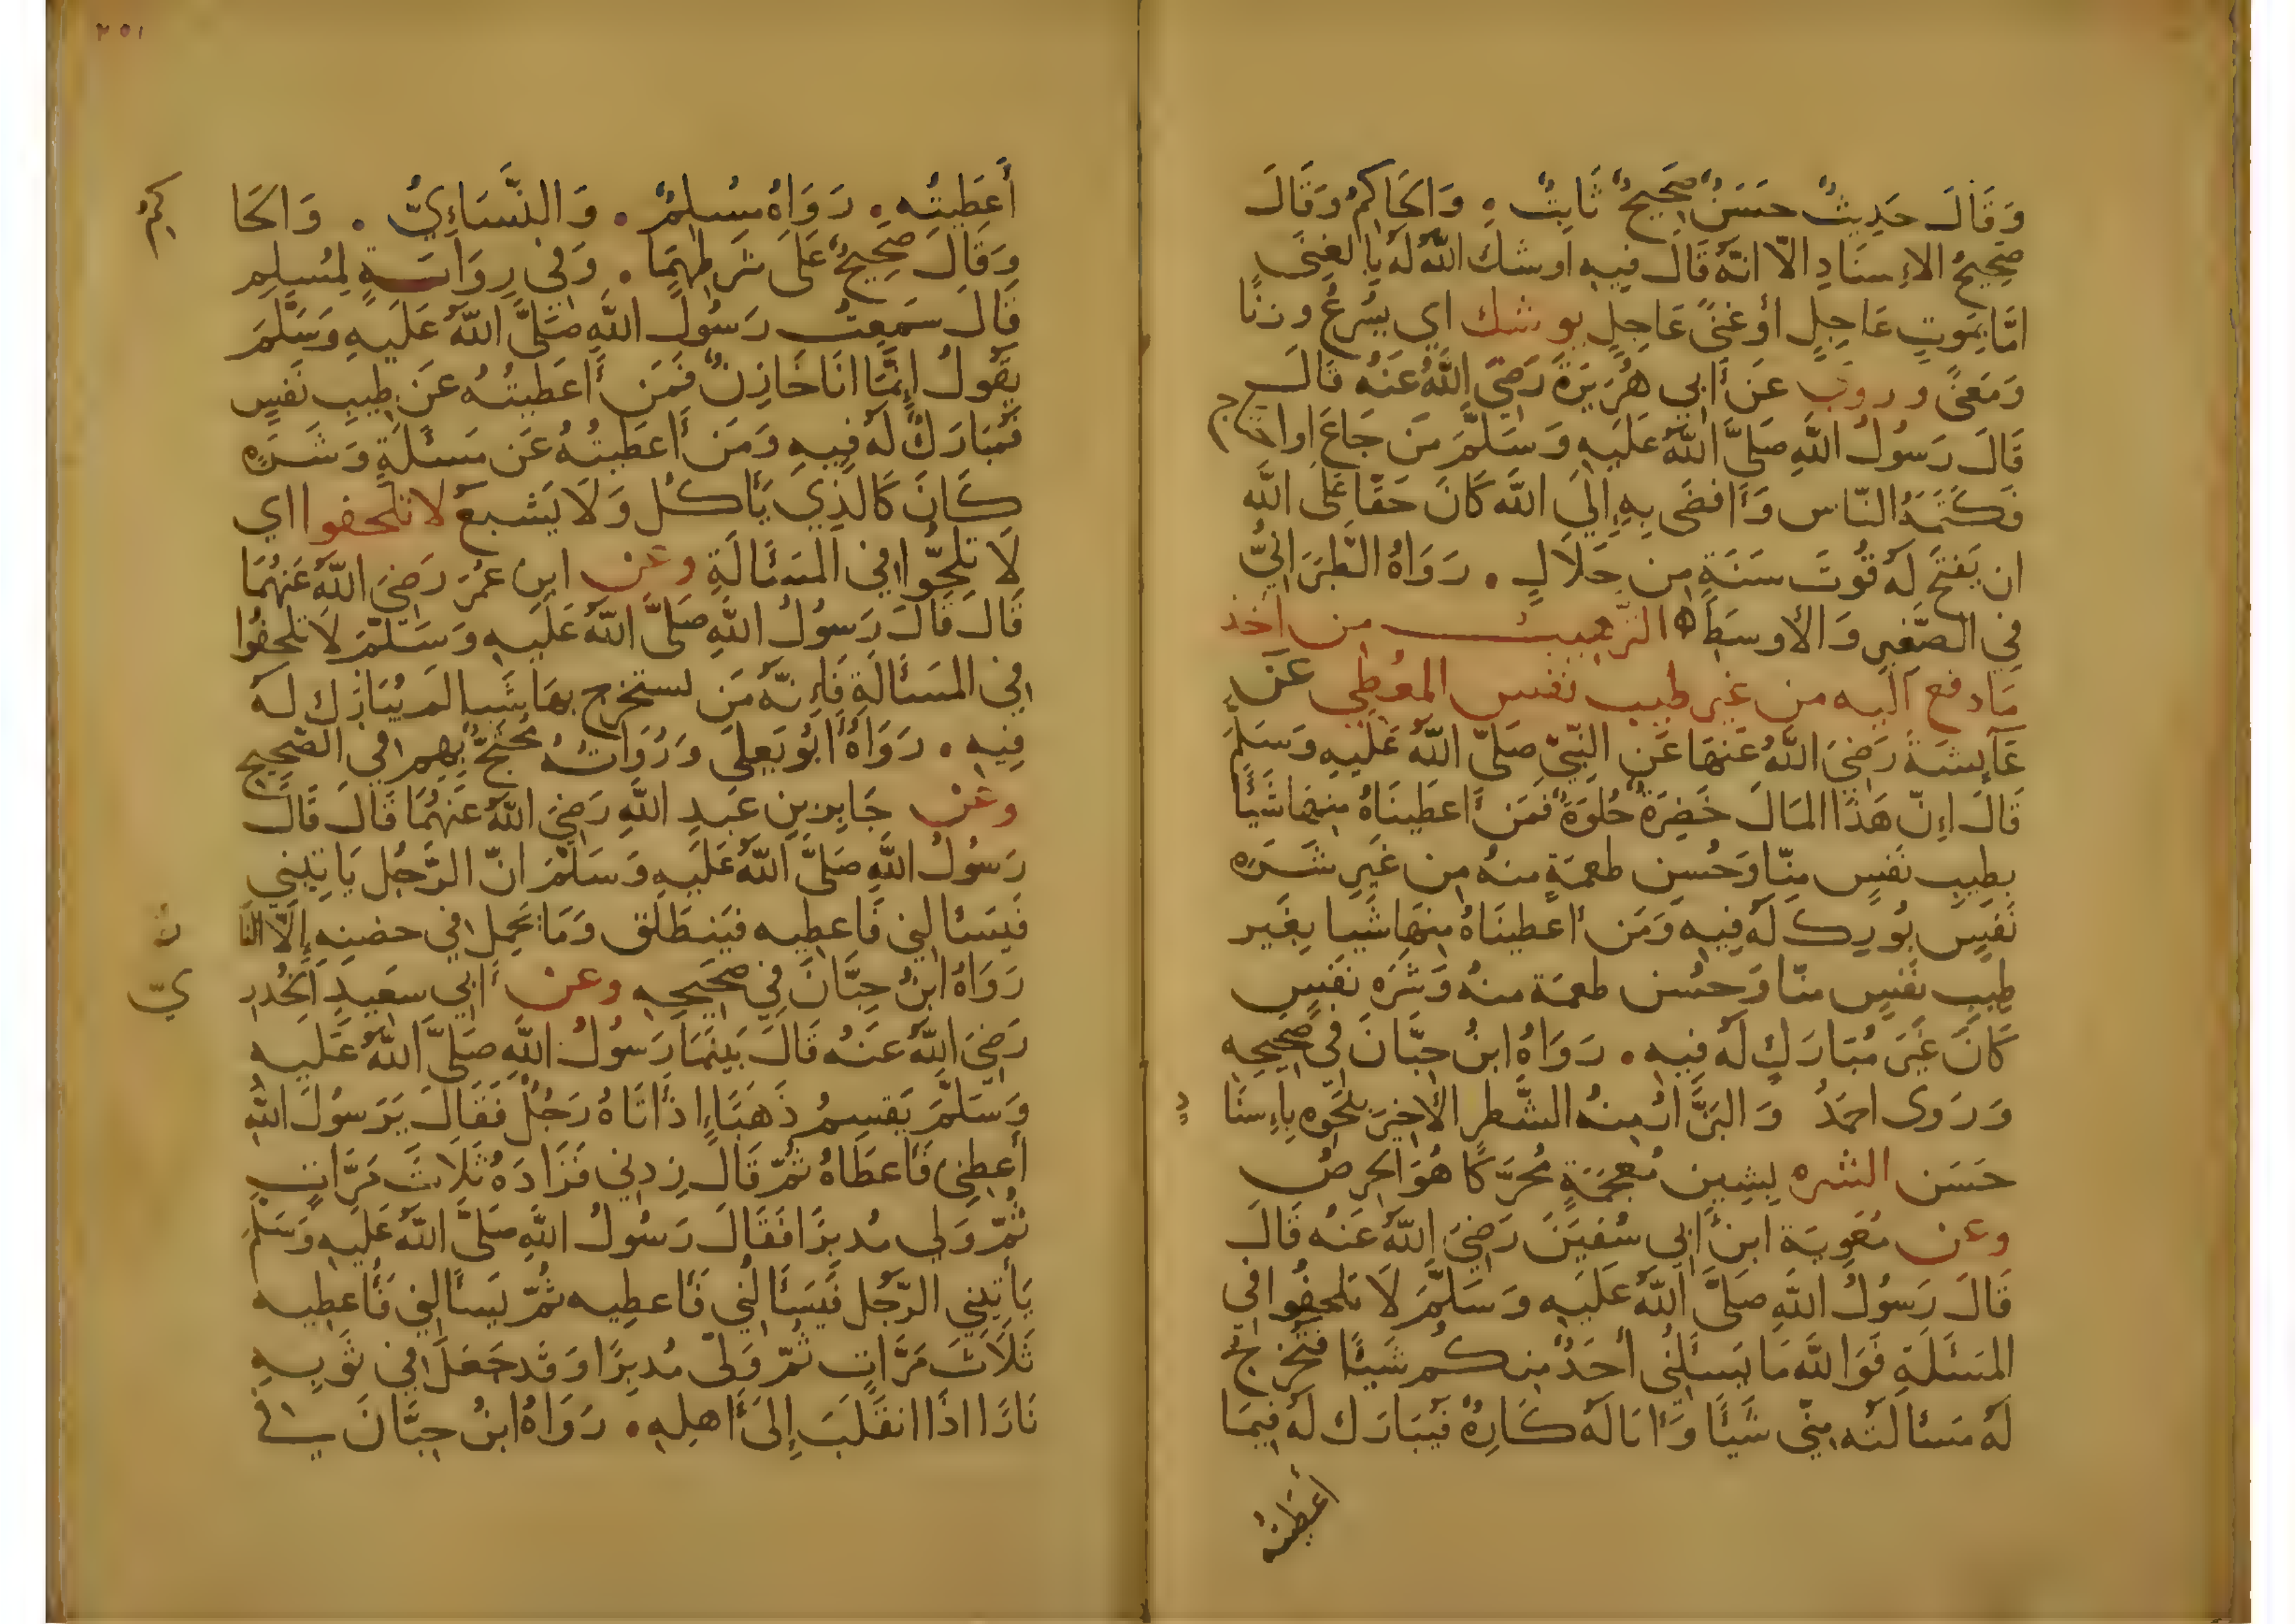 وَقَالَ حَدِيثٌ حَسَنٌ صَحِيحٌ ثَابِتٌ . وَالحَاكِمُ وَقَالَ
صَحِيحُ الإِسنَادِ الّا انَّهُ قَالَ فِيهِ اوشك اللّٰهُ لَهُ بِالغِنَى
امَّا بِمَوتٍ عَاجِلٍ أوغِنًى عَاجِلٍ يوشك اي يُسْرعُ وزنًا
وَمَعنًى وروي عَن أبِي هُرَيرَةَ رَضِيَ اللّٰهُ عَنهُ قَالَ
قَالَ رَسُولُ اللّٰهِ صَلَّى اللّٰهُ عَلَيهِ وَسَلَّمَ مَن جَاعَ اواحتاج
فَكَتَمَهُ النّاس وَأَفضَى بِهِ إِلَى اللّٰه كَانَ حَقًا عَلَى اللّٰه
ان يَفتَحَ لَهُ قُوتَ سَنَةٍ مِن حَلَالٍ . رَوَاهُ الطَّبَرَانِيُّ
فِي الصَّغِيرِ وَالأوسَطِ التّرهيبُ من اخذ
مَا دفع اليه من غير طيب نفس المُعطِي عَن
عَآيِشَةَ رَضِيَ اللّٰهُ عَنهَا عَنِ النَّبِيّ صَلَّى اللّٰهُ عَلَيهِ وَسَلَّمَ
قَالَ إِنّ هَذَا المَالَ خَضِرَةٌ حُلوَةٌ فَمَن أَعطَينَاهُ مِنهَا شَيئًا
بِطِيبِ نَفسٍ مِنّا وَحُسنِ طعمَةٍ مِنهُ مِن غَيرِ شَرَهِ
نَفسٍ بُورِكَ لَهُ فِيهِ وَمَن أَعطَينَاهُ مِنهَا شَيا بِغَير
طِيبِ نَفسٍ منّا وَحُسن طعمَة منهُ وَشَرَهِ نَفسٍ
كَانَ غَيرَ مُبَارَكٍ لَهُ فِيهِ . رَوَاهُ ابنُ حِبَّانَ فِي صَحِيحِهِ
وَرَوى احمَدُ وَالبَزَّارُ مِنهُ الشَّطر الأخِيرَ بِنَحوِهِ بِاِسنَا
دٍ
حَسَن الشره بِشِينٍ مُعجَمَةٍ مُحَرَّكًا هُوَ الحِرصُ
وعن مُعَوِيَة ابن أبِي سُفيَنَ رَضِيَ اللّٰهُ عَنهُ قَالَ
قَالَ رَسُولُ اللّٰهِ صَلَّى اللّٰهُ عَلَيهِ وَسَلَّمَ لَا تلحِفُوا فِي
المَسئَلَةِ فَوَاللّٰه مَا يَسئَلُنِي أَحَدٌ مِنكُم شَيئًا فَتُخرِج
لَهُ مَسئَالَتُه مِنّي شَيئًا وَأَنَا لَهُ كَارِهٌ فَيُبَارَك لَهُ فِيمَا
أعطَيتُه
٢٥١
أَعطَيتُهُ . رَوَاهُ مُسلِمٌ . وَالنَّسَاءِيُّ . وَالحَا
كِمُ
وَقَالَ صَحِيحٌ عَلَى شَرطِهِمَا . وَفِي رِوَايَةٍ لِمُسلِمٍ
قَالَ سَمِعتُ رَسُولَ اللّٰهِ صَلَّى اللّٰهُ عَلَيهِ وَسَلَّمَ
يَقُولُ إِنَّمَا انَا خَازِنٌ فَمَن أَعطَيتُهُ عَن طِيبِ نَفسٍ
فَمُبَارَكٌ لَهُ فِيهِ وَمَن أَعطَيتُهُ عَن مَسئَلَةٍ وَشَرَهٍ
كَانَ كَالَّذِي يَأكُل وَلَا يَشبَعُ لا تلحفوا اي
لَا تلِحُّوا فِي المَسئَالَةِ وعن ابنِ عُمَرَ رَضِيَ اللّٰهُ عَنهُمَا
قَالَ قَالَ رَسُولُ اللّٰهِ صَلَّى اللّٰهُ عَلَيهِ وَسَلَّمَ لَا تلحِفُوا
فِي المَسئَالَةِ فَإِنَّهُ مَن يستخرج بهَا شَيا لَم يُبَارَك لَهُ
فِيهِ . رَوَاهُ أَبُو يَعلَى وَرُوَاتُهُ مُحتَجٌّ بِهِم فِي الصَّحِيحِ
وعن جَابِرِ بنِ عَبدِ اللّٰهِ رَضِيَ اللّٰهُ عَنهُمَا قَالَ قَالَ
رَسُولُ اللّٰهِ صَلَّى اللّٰهُ عَلَيهِ وَسَلَّمَ انّ الرَّجُل يَاتِينِي
فَيَسئالنِي فَاعطِيه فيَنطَلق وَمَا يَحمِل فِي حضنِهِ إِلَّا النَّا
رَوَاهُ ابنُ حِبَّانَ فِي صَحِيحِهِ وعن أبِي سَعِيدٍ الخُدرِ
يّ
رَضِيَ اللّٰهُ عَنهُ قَالَ بَينَمَا رَسُولُ اللّٰهِ صَلَّى اللّٰهُ عَلَيه
وَسَلَّمَ يَقسِمُ ذَهَبًا إِذ أَتَاهُ رَجُلٌ فَقَالَ يَرَسُولَ اللّٰهِ
أَعطِنِي فَأَعطَاهُ ثُمَّ قَالَ زِدنِي فَزَادَهُ ثَلَاثَ مَرَّاتٍ
ثُمَّ وَلى مُدبِرًا فَقَالَ رَسُولُ اللّٰهِ صَلَّى اللّٰهُ عَلَيهِ وَسَلَّمَ
يَأتِينِي الرَّجُل فَيَسئَالُنِي فَأعطِيه ثُمَّ يَسئَالنِي فَأعطِيه
ثَلَاثَ مَرَّاتٍ ثُمَّ وَلَّى مُدبِرًا وَقَد جَعَلَ فِي ثَوبِهِ
نَارًا اذَا انقَلَبَ إِلَى أَهلِهِ . رَوَاهُ ابنُ حِبَّانَ فِي